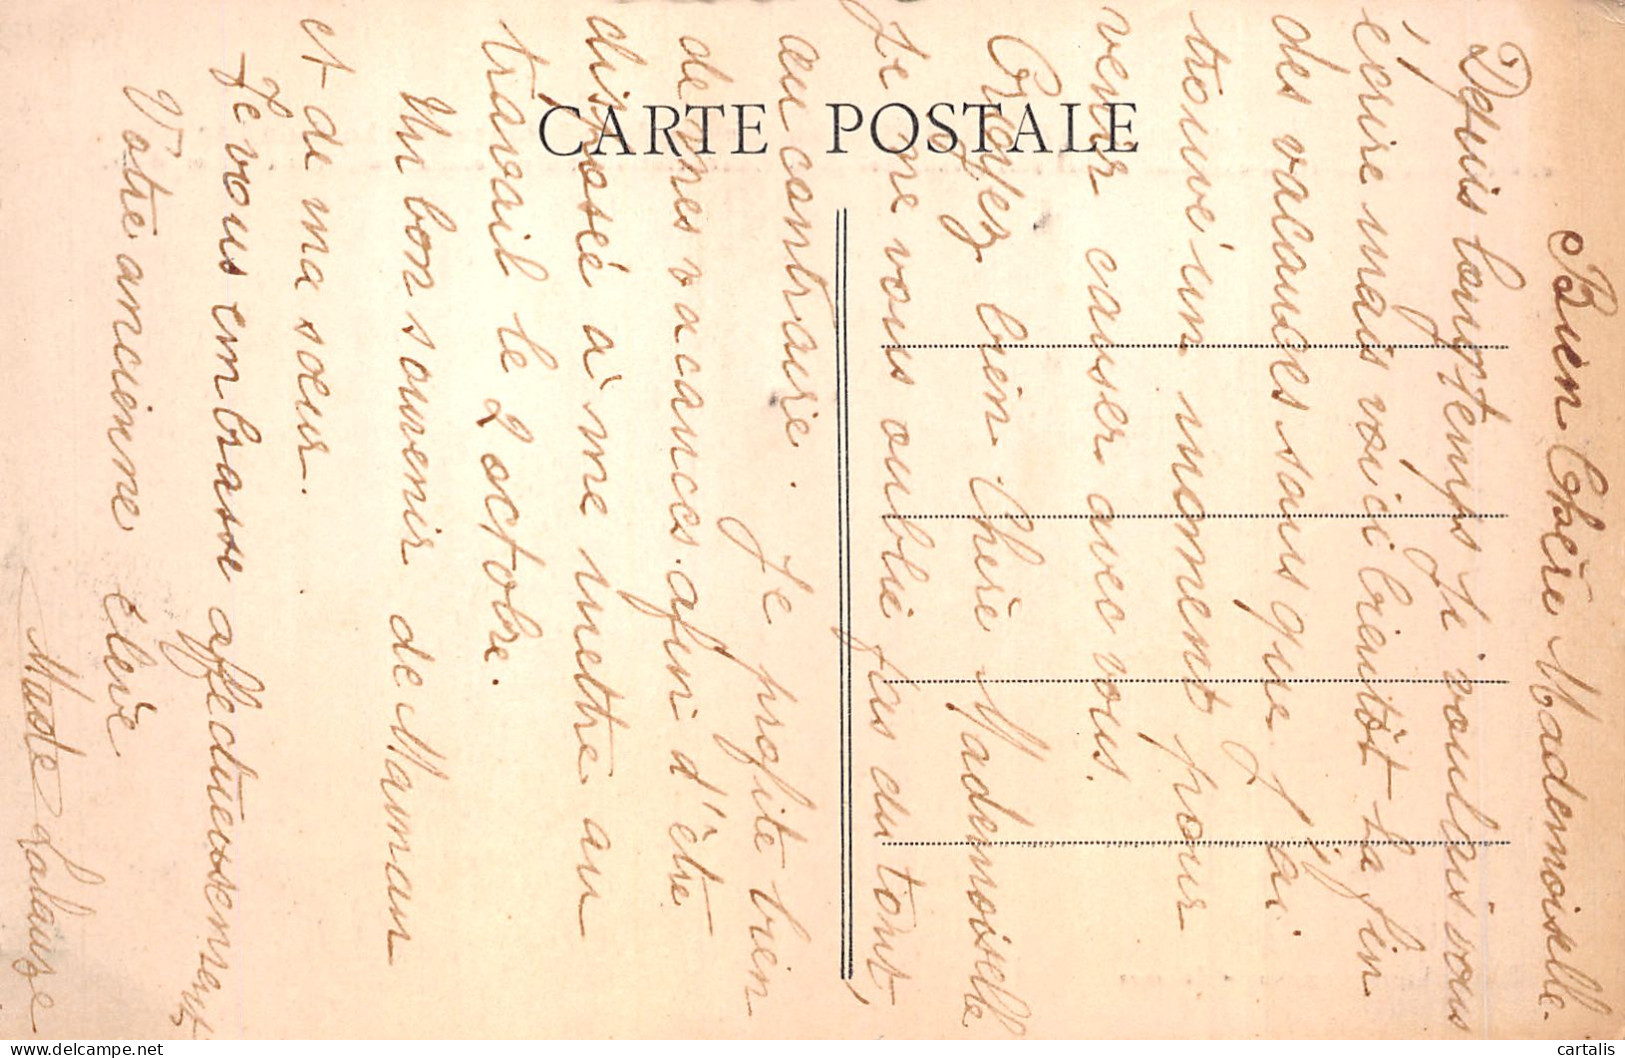 CARTE POSTALE
Bien Chère Mademoiselle.
Depuis longtemps je voulais vous
écrire mais voici bientôt la fin
des vacances sans que j'ai
trouvé un moment pour
venir causer avec vous.
Croyez bien Chère Mademoiselle
je ne vous oublie pas du tout,
au contraire. Je profite bien
de mes vacances afin d'être
disposé à me mettre au
travail le 2 octobre.
Un bon souvenir de Maman
et de ma sœur.
Je vous embrasse affectueusement
Votre ancienne élève
Lalauze
cartalis